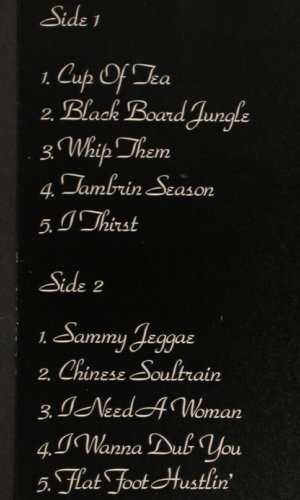 Side 1
1. Cup Of Tea
2. Black Board Jungle
3. Whip Them
4. Tambrin Season
5. I Thirst
Side 2
1. Sammy Jeggae
2. Chinese Soultrain
3. I Need A Woman
4. I Wanna Dub You
5. Flat Foot Hustlin'